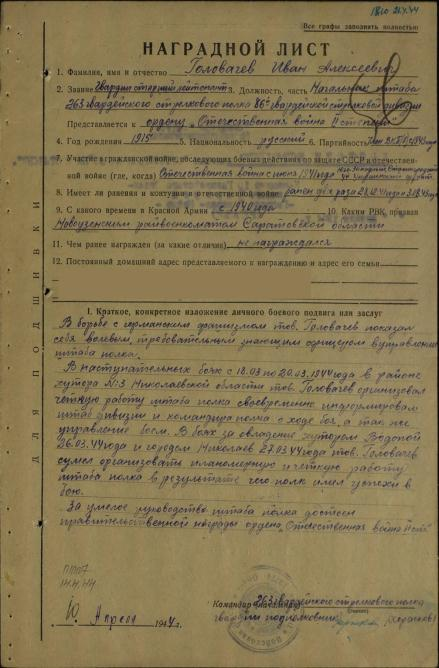 Все графы заполнять полностью
НАГРАДНОЙ ЛИСТ
1. Фамилия, имя и отчество Головачев Иван Алексеевич
2. Звание гвардии старший лейтенант 3. Должность, часть Начальник штаба
263 гвардейского стрелкового полка 86й гвардейской стрелковой дивизии
Представляется к ордену „Отечественная война II степени"
4. Год рождения 1915 5. Национальность русский 6. Партийность
7. Участие в гражданской войне, последующих боевых действиях по защите СССР и отечествен-
ной войне (где, когда) Отечественная война с июня 1941 года
8. Имеет ли ранения и контузии в отечественной войне ранен два раза
9. С какого времени в Красной Армии с 1940 года 10. Каким РВК призван
Новоузенским райвоенкоматом Саратовской области
11. Чем ранее награжден (за какие отличия) не награждался
12. Постоянный домашний адрес представляемого к награждению и адрес его семьи
I. Краткое, конкретное изложение личного боевого подвига или заслуг
В борьбе с германским фашизмом тов. Головачев показал
себя волевым, требовательным знающим офицером в управлении
штаба полка.
В наступательных боях с 18.03 по 20.03.1944 года в районе
хутора №3 Николаевской области тов. Головачев организовал
четкую работу штаба полка своевременно информировал
штаб дивизии и командира полка о ходе боя, а так же
управление боем. В боях за овладение хутором Водопой
26.03.44 года и городом Николаев 27.03.44 года тов. Головачев
сумел организовать планомерную и четкую работу
штаба полка в результате чего полк имел успехи в
бою.
За умелое руководство штаба полка достоин
правительственной награды ордена „Отечественная война II ст"
ДЛЯ ПОДШИВКИ
14.4.44
10 Апреля 1944 г.
Командир 263 гвардейского стрелкового полка
гвардии подполковник